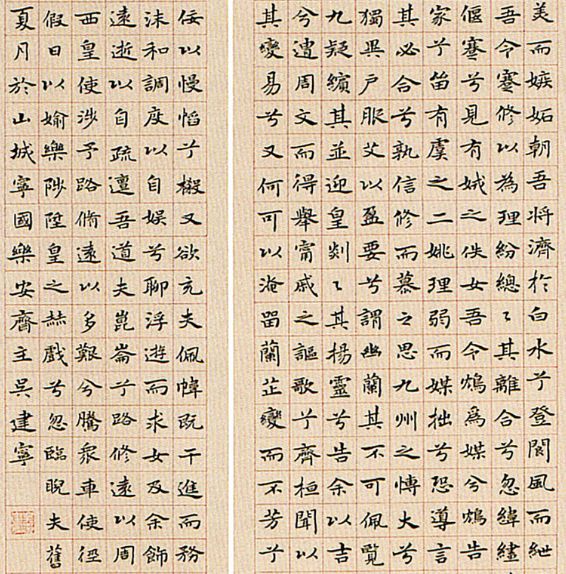 美而嫉妬朝吾将濟於白水兮登閬風而紲
吾令蹇修以為理紛總々其離合兮忽緯繣
偃蹇兮見有娀之佚女吾令鴆為媒兮鴆告
家兮留有虞之二姚理弱而媒拙兮恐導言
其必合兮孰信修而慕之思九州之博大兮
獨異戶服艾以盈要兮謂幽蘭其不可佩覽
九疑繽其並迎皇剡々其揚靈兮告余以吉
兮遭周文而得舉甯戚之謳歌兮齊桓聞以
其變易兮又何可以淹留蘭芷變而不芳兮
佞以慢慆兮樧又欲充夫佩幃既干進而務
沫和調度以自娱兮聊浮遊而求女及余飾
遠逝以自疏邅吾道夫崑崙兮路修遠以周
西皇使涉予路脩遠以多艱兮騰衆車使徑
假日以媮樂陟陞皇之赫戲兮忽臨睨夫舊
夏月於山城寧國樂安齊主吳建寧